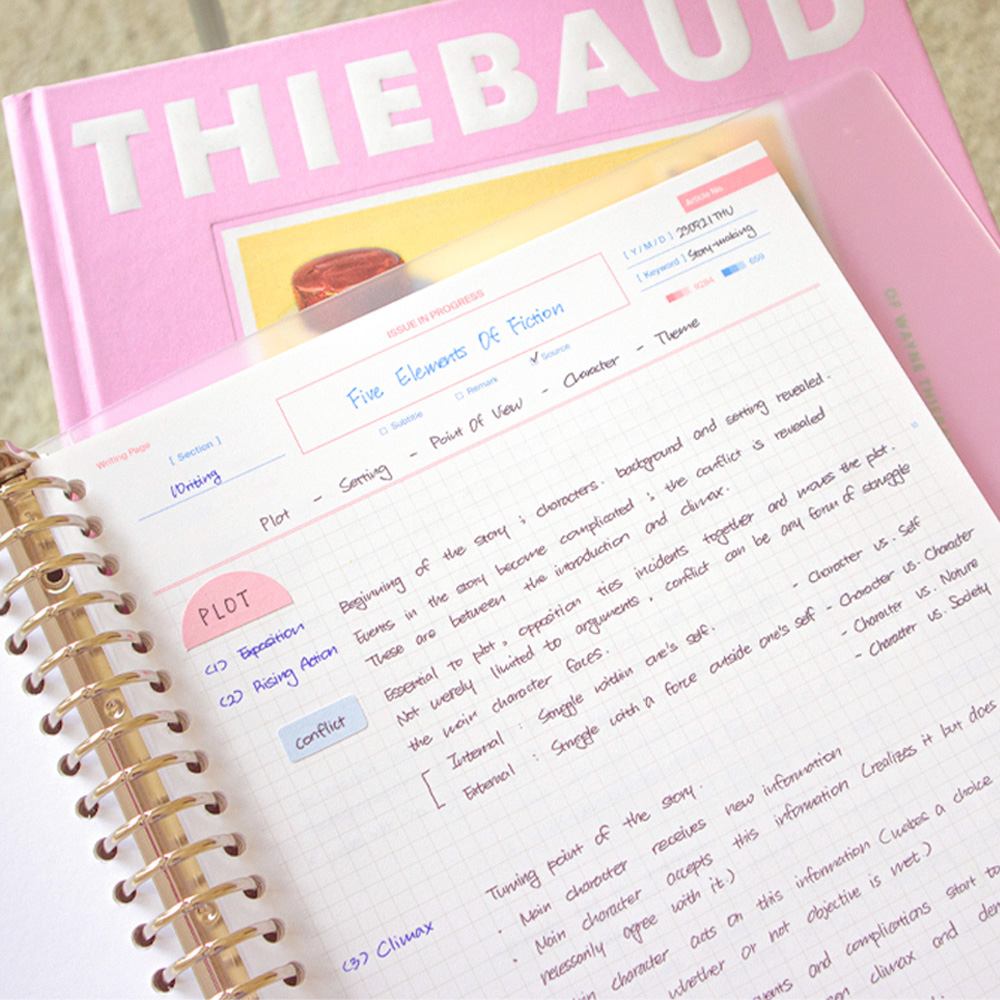 THIEBAUD
OF WAYNE THIEB
Article No.
[ Y/M/D ] 230921 THU
[ Keyword ] Story-making
659
ISSUE IN PROGRESS
Five Elements Of Fiction
□ Subtitle □ Remark ✓ Source
Writing Page
[ Section ]
Writing
Plot - Setting - Point Of View - Character - Theme
PLOT
(1) Exposition
Beginning of the story ; characters. background and setting revealed.
(2) Rising Action
Events in the story become complicated ; the conflict is revealed
These are between the introduction and climax.
conflict
Essential to plot, opposition ties incidents together and moves the plot.
Not merely limited to arguments, conflict can be any form of struggle
the main character faces.
[ Internal : Struggle within one's self.
External : Struggle with a force outside one's self
- Character vs. Self
- Character vs. Character
- Character vs. Nature
- Character vs. Society
(3) Climax
Turning point of the story.
· Main character receives new information
· Main character accepts this information (realizes it but does
necessarily agree with it.)
character acts on this information (makes a choice
whether or not objective is met.)
events and complications start to
climax and